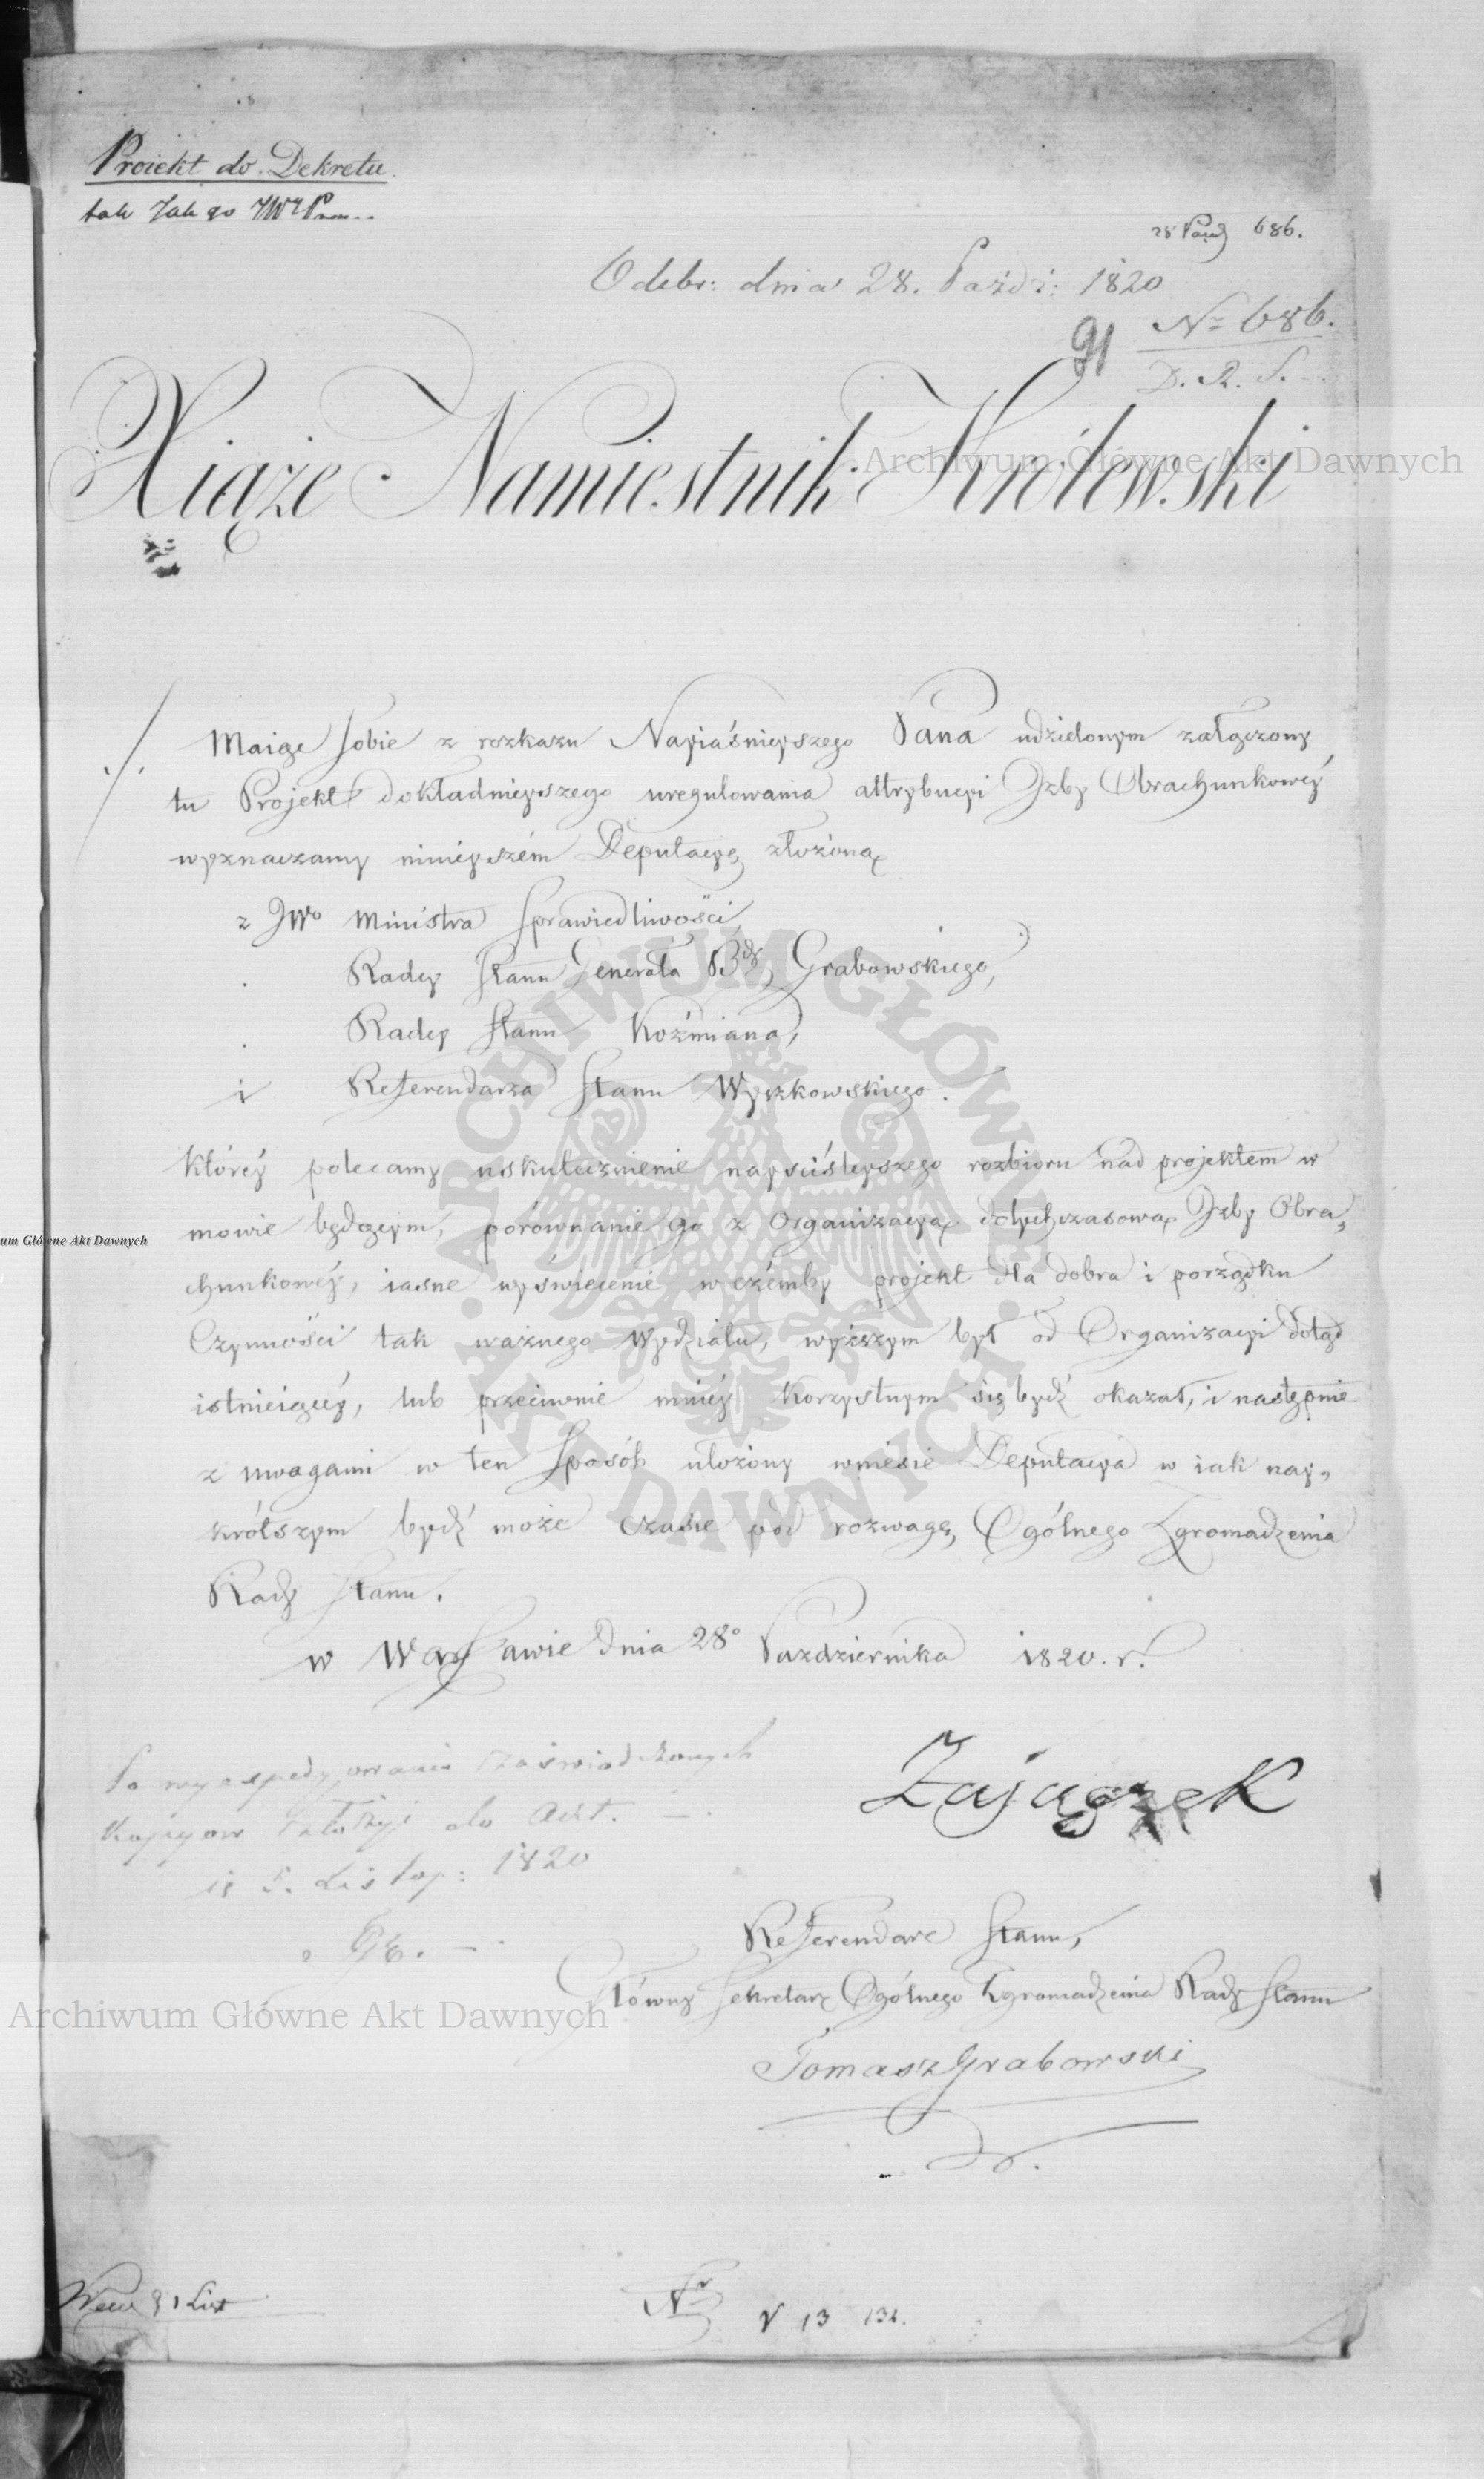 Proiekt do Dekretu
tak Jak go
28 Paźd 686.
Odebr: dnia 28. Paźdz: 1820
91
Nº 686.
D. R. S.
Xiąże Namiestnik Królewski
Archiwum Główne Akt Dawnych
Maiąc sobie z rozkazu Nayiaśnieyszego Pana udzielonym załączony
tu Projekt dokładnieyszego uregulowania attrybucyi Izby Obrachunkowéy
wyznaczamy ninieyszém Deputacyę złożoną
z JWº Ministra Sprawiedliwości,
Radcy Stanu Generała Bdy Grabowskiego,
Radcy Stanu Koźmiana,
i Referendarza Stanu Wyczkowskiego.
któréy polecamy uskutecznienie nayściśleyszego rozbioru nad projektem w
mowie będącym, porównanie go z Organizacyą dotychczasową Izby Obra„
chunkowéy, iasne wyświecenie w czémby projekt dla dobra i porządku
Czynności tak ważnego Wydziału, wyższym był od Organizacyi dotąd
istnieiącéy, lub przeciwnie mniéy korzystnym się bydź okazał, i następnie
z uwagami w ten sposób ułożony wniesie Deputacya w iak nay„
krótszym bydź może czasie pod rozwagę Ogólnego Zgromadzenia
Rady Stanu.
w Warszawie dnia 28º Pazdziernika 1820. r.
Zajączek
Po wyexpedyowaniu zaświadczonych
kopiyow złożyć do Akt.
5. Listop: 1820
Referendarz Stanu,
Główny Sekretarz Ogólnego Zgromadzenia Rady Stanu
Tomasz Grabowski
um Główne Akt Dawnych
Archiwum Główne Akt Dawnych
ARCHIWUM GŁÓWNE AKT DAWNYCH
Nr
V 13 132.